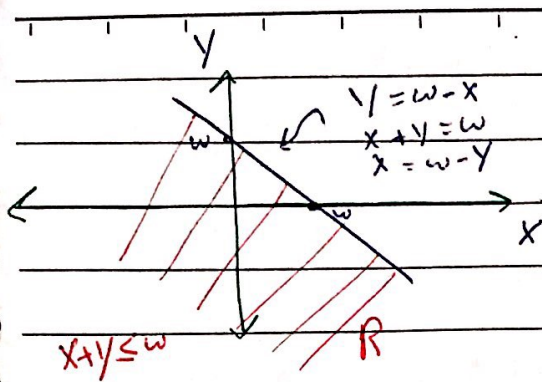 Y
Y = w - x
x + y = w
x = w - y
w
w
X
x+y ≤ w
R